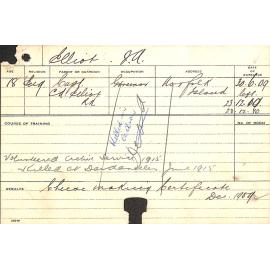 Elliot. J.A.
AGE RELIGION PARENT OR GUARDIAN OCCUPATION ADDRESS DATE
18 Ceng Capt Governor Norfolk 30.6.09
C.A. Elliot Island Sept.
R.A. 23.12.09
COURSE OF TRAINING
Killed in Action
Volunteered Active Service 1915
Killed at Dardanelles June 1915
RESULTS Cheese making Certificate
Dec. 1909